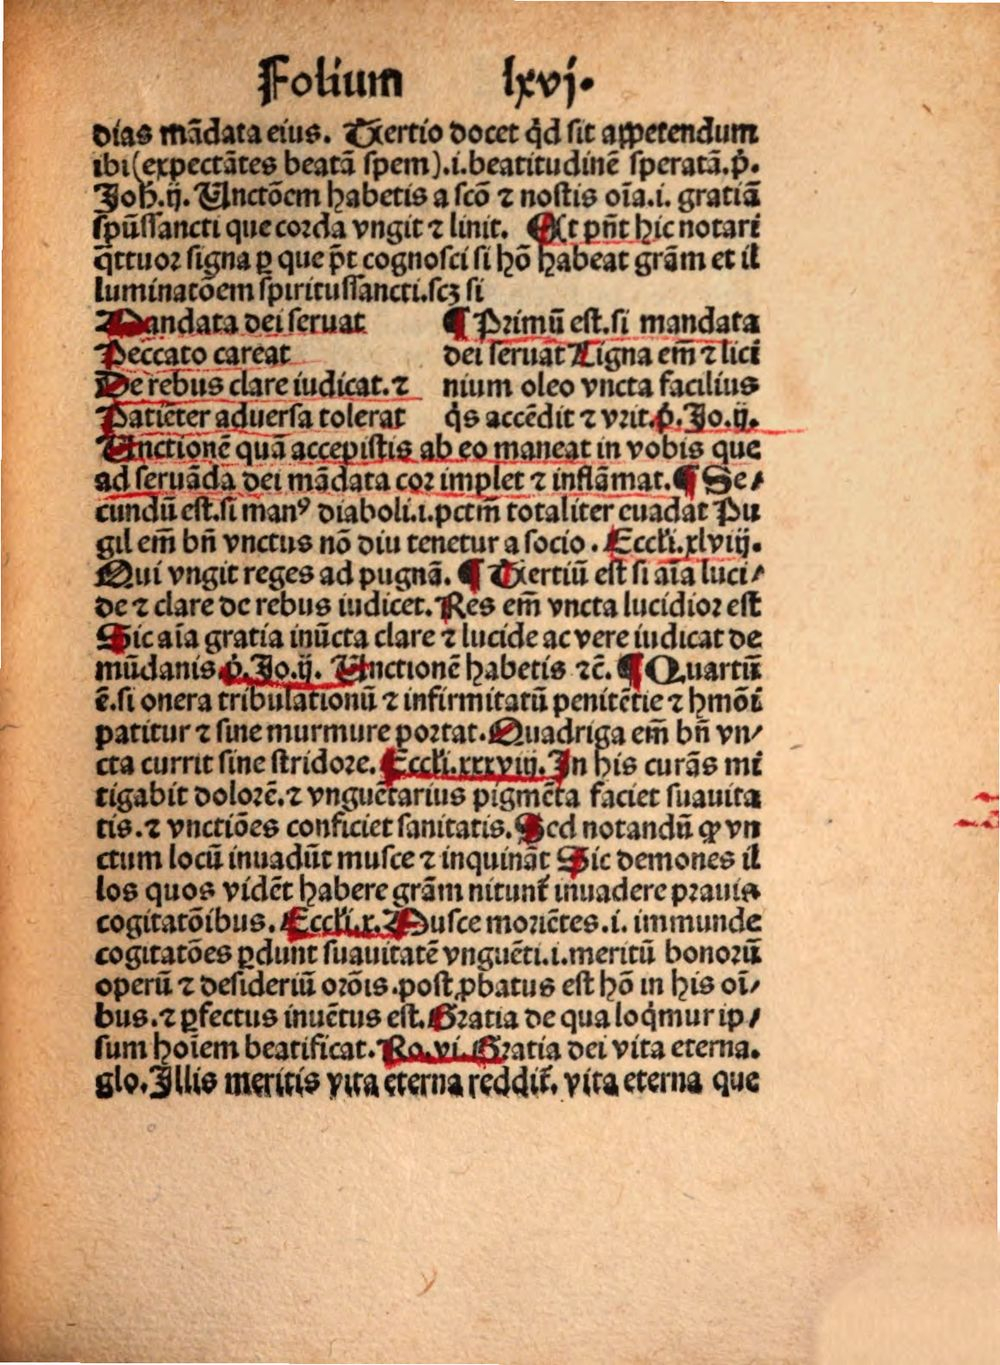 Folium lxvj.
dias mādata eius. Tertio docet qd̄ sit appetendum
ibi (expectātes beatā spem).i.beatitudinē speratā.p̄.
Joh̄.ij. Unctōem habetis a scō ⁊ nostis oīa.i. gratiā
spūssancti que corda vngit ⁊ linit. Et pn̄t hic notari
q̄ttuor signa ꝑ que pt̄ cognosci si hō habeat grām et il
luminatōem spiritussancti.scꝫ si
Mandata dei seruat
Peccato careat
De rebus clare iudicat. ⁊
Patiēter aduersa tolerat
¶ Primū est.si mandata
dei seruat Ligna em̄ ⁊ lici
nium oleo vncta facilius
q̄s accēdit ⁊ vrit.p̄.Jo.ij.
Unctionē quā accepistis ab eo maneat in vobis que
ad seruāda dei mādata cor implet ⁊ inflāmat. ¶ Se⸗
cundū est.si manꝰ diaboli.i.pctm̄ totaliter euadat Pu
gil em̄ bn̄ vnctus nō diu tenetur a socio. Eccl'i.xlviij.
Qui vngit reges ad pugnā. ¶ Tertiū est si aīa luci⸗
de ⁊ clare de rebus iudicet. Res em̄ vncta lucidior est
Sic aīa gratia inūcta clare ⁊ lucide ac vere iudicat de
mūdanis p̄.Jo.ij. Unctionē habetis ⁊c̄. ¶ Quartū
ē.si onera tribulationū ⁊ infirmitatū penitētie ⁊ hmōi
patitur ⁊ sine murmure portat. Quadriga em̄ bn̄ vn⸗
cta currit sine stridore. Eccl'i.xxxviij. In his curās mi
tigabit dolorē.⁊ vnguētarius pigmēta faciet suauita
tis.⁊ vnctiōes conficiet sanitatis. Sed notandū ꝙ vn
ctum locū inuadūt musce ⁊ inquināt Sic demones il
los quos vidēt habere grām nitunt̄ inuadere prauis
cogitatōibus. Eccl'i.x. Musce moriētes.i. immunde
cogitatōes ꝑdunt suauitatē vnguēti.i.meritū bonorū
operū ⁊ desideriū orōis.post ꝓbatus est hō in his oī⸗
bus.⁊ ꝑfectus inuētus est. Gratia de qua loq̄mur ip⸗
sum hoīem beatificat. Ro.vi. Gratia dei vita eterna.
glo. Illis meritis vita eterna reddit̄. vita eterna que